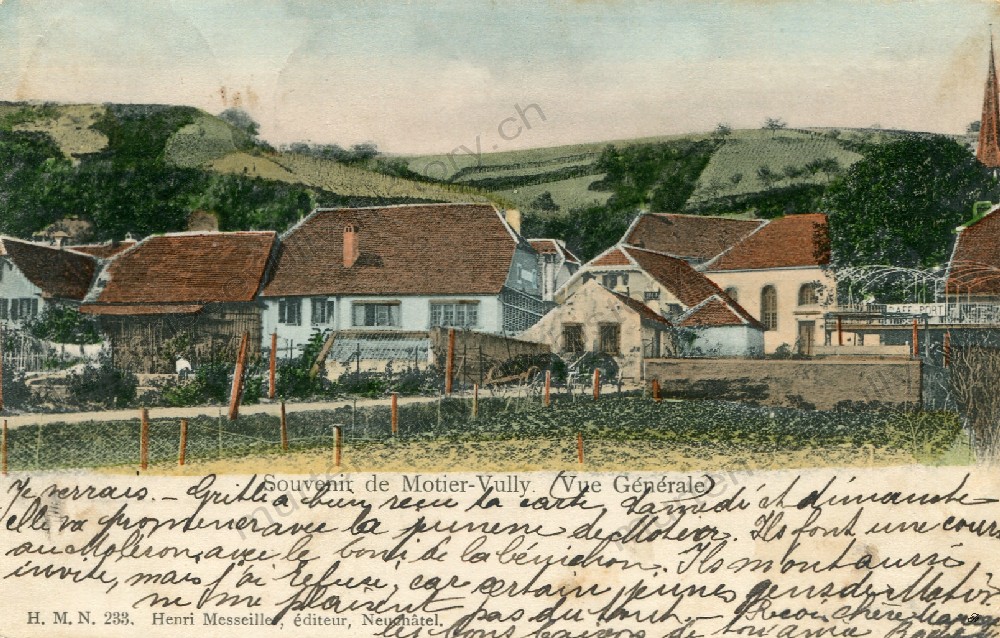 CAFE
Souvenir de Motier-Vully. (Vue Générale)
Je verrais. - Gritli a bien reçu la carte, samedi et dimanche
elle va promener avec la jeunesse de Motier. Ils font une course
au Moléson, avec le bout de la bénichon. Ils m'ont aussi
invité, mais j'ai refusé, car certain jeunes gens de Motier
ne me plaisent pas du tout. - Reçois chère
les bons baisers de ton amie
H. M. N. 233. Henri Messeiller, éditeur, Neuchâtel.